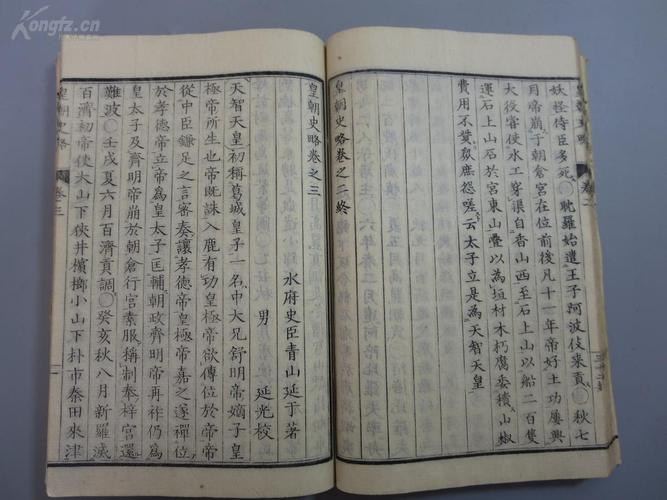 Kongfz.cn
妖怪侍臣多死○耽羅始遣王子阿波伎来貢○秋七
月帝崩于朝倉宮在位前後凡十一年帝好土功屡興
大役嘗使水工穿渠自香山西至石上山以船二百隻
運石上山石於宮東山疊以為垣材木朽腐委積山椒
費用不貲衆庶怨嗟云太子立是為天智天皇
皇朝史略卷之二終
皇朝史略卷之三
水府史臣青山延于著
男 延光校
天智天皇初稱葛城皇子一名中大兄舒明帝嫡子皇
極帝所生也帝既誅入鹿有功皇極帝欲傳位於帝帝
從中臣鎌足之言審奏讓孝德帝皇極帝嘉之遂禪位
於孝德帝立帝為皇太子匡輔朝政齊明帝再祚仍為
皇太子及齊明帝崩於朝倉行宮素服稱制奉梓宮還
難波○壬戌夏六月百濟貢調○癸亥秋八月新羅滅
百濟初帝使大山下狹井檳榔小山下朴市秦田來津
皇朝史略
卷三
一